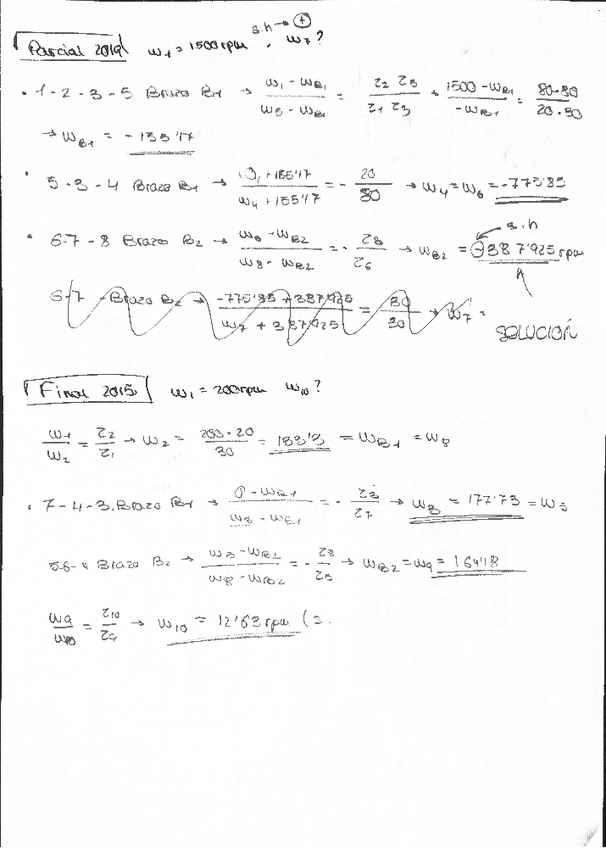 s.h → +
Parcial 2019 ω1 = 1500 rpm , ω7?
• 1-2-3-5 Brazo B1 → (ω1 - ωB1)/(ω5 - ωB1) = (z2 z5)/(z1 z3) → (1500 - ωB1)/(-ωB1) = (80·80)/(20·30)
→ ωB1 = -155'17
• 5-3-4 Brazo B1 → ( +155'17)/(ω4 +155'17) = - 20/80 → ω4 = ω6 = -775'85
s.h
• 6-7-8 Brazo B2 → (ω6 - ωB2)/(ω8 - ωB2) = - z8/z6 → ωB2 = -387'925 rpm
6-7 - Brazo B2 → (-775'85 + 387'925)/(ω7 + 387'925) = 30/30 → ω7 =
SOLUCIÓN
Final 2015 ω1 = 200 rpm ω10?
ω1/ω2 = z2/z1 → ω2 = (200 · 20)/30 = 133'3 = ωB1 = ω8
• 7-4-3, Brazo B1 → (0 - ωB1)/(ω3 - ωB1) = - z3/z7 → ω3 = 177'73 = ω5
5-6-8 Brazo B2 → (ω5 - ωB2)/(ω8 - ωB2) = - z8/z5 → ωB2 = ω9 = 164'18
ω9/ω10 = z10/z9 → ω10 = 12'63 rpm (s.